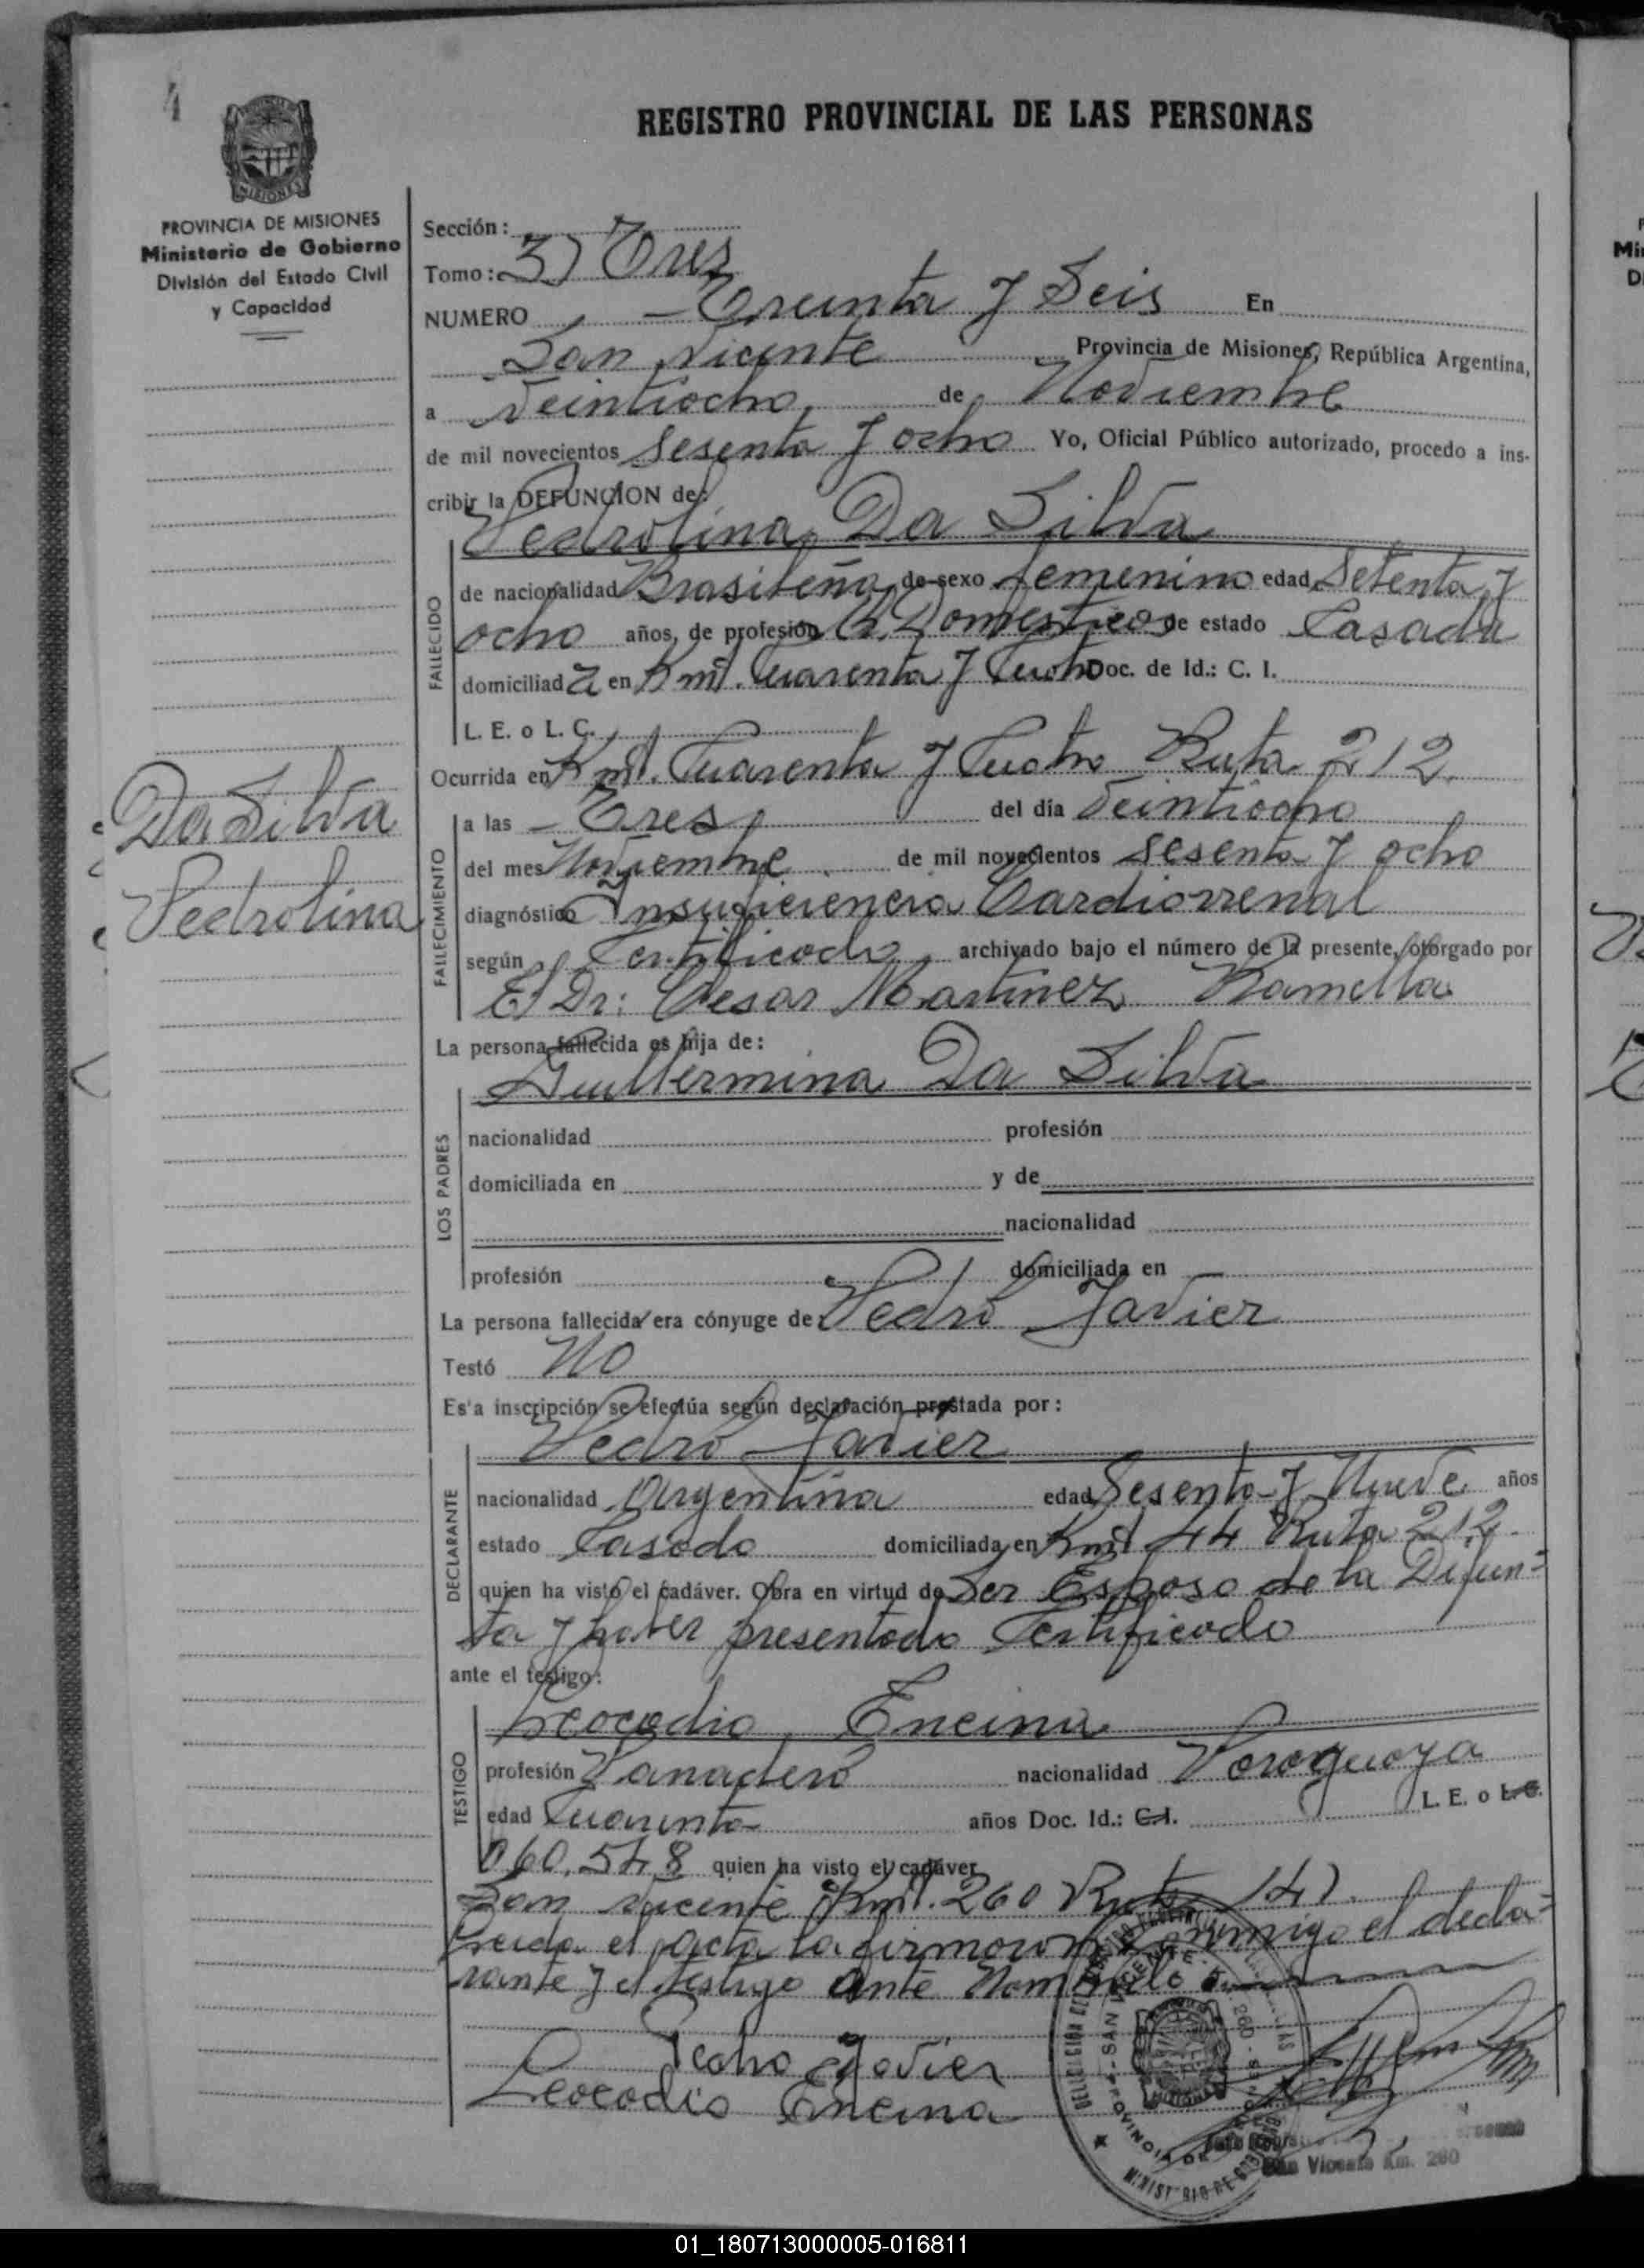 4
REGISTRO PROVINCIAL DE LAS PERSONAS
MISIONES
PROVINCIA DE MISIONES
Ministerio de Gobierno
División del Estado Civil
y Capacidad
Sección:
Tomo: 3) Tres
NUMERO - Treinta y Seis En
San Vicente Provincia de Misiones, República Argentina,
a Veintiocho, de Noviembre
de mil novecientos Sesenta y ocho Yo, Oficial Público autorizado, procedo a ins-
cribir la DEFUNCION de:
Pedrolina Da Silva
FALLECIDO
de nacionalidad Brasileña de sexo femenino edad Setenta y
ocho años, de profesión Q. Domesticos de estado Casada
domiciliad a en Kmt. Cuarenta y Cuatro Doc. de Id.: C. I.
L. E. o L. C.
Ocurrida en Kmt. Cuarenta y Cuatro Ruta 212.
Da Silva
Pedrolina
FALLECIMIENTO
a las - Tres del día Veintiocho
del mes Noviembre de mil novecientos Sesenta y ocho
diagnóstico Insuficiencia Cardiorrenal
según Certificado archivado bajo el número de la presente, otorgado por
El Dr: Cesar Martinez Ramella
La persona fallecida es hija de:
Guillermina Da Silva
LOS PADRES
nacionalidad profesión
domiciliada en y de
nacionalidad
profesión domiciliada en
La persona fallecida era cónyuge de Pedro Javier
Testó NO
Es'a inscripción se efectúa según declaración prestada por:
Pedro Javier
DECLARANTE
nacionalidad Argentina edad Sesenta y Nueve años
estado Casado domiciliada en Kmt 44 Ruta 212
quien ha visto el cadáver. Obra en virtud de Ser Esposo de la Difun=
ta y haver presentado Certificado
ante el testigo:
Leocadio Encina
TESTIGO
profesión Panadero nacionalidad Paraguaya
edad Cuarenta años Doc. Id.: C.I. L. E. o L.C.
060.548 quien ha visto el cadáver
San Vicente Kmt. 260 Ruta 14).
Leida el acta la firmaron conmigo el decla=
rante y el testigo ante
Pedro Javier
Leocadio Encina
SAN VICENTE
PROVINCIA DE
San Vicente Km. 260
01_180713000005-016811